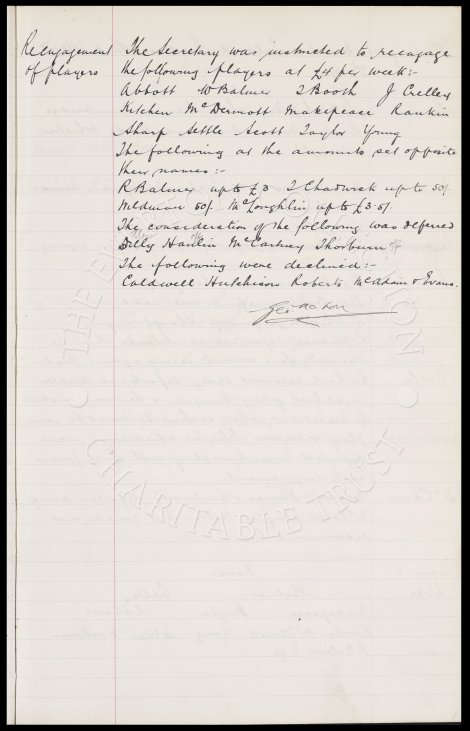 Reengagement of players
The Secretary was instructed to reengage
the following players at £4 per week:-
Abbott W Balmer T Booth J Crelley
Kitchen McDermott Makepeace Rankin
Sharp Settle Scott Taylor Young
The following at the amounts set opposite
their names:-
R Balmer up to £3 T Chadwick up to 50/-
Wildman 50/- McLoughlin up to £3.5/-
The consideration of the following was deferred
Dilly Hardin McCartney Thorburn
The following were declined:-
Caldwell Hutchison Roberts McAdam & Evans.
Geo Mahon
THE EVERTON COLLECTION
CHARITABLE TRUST